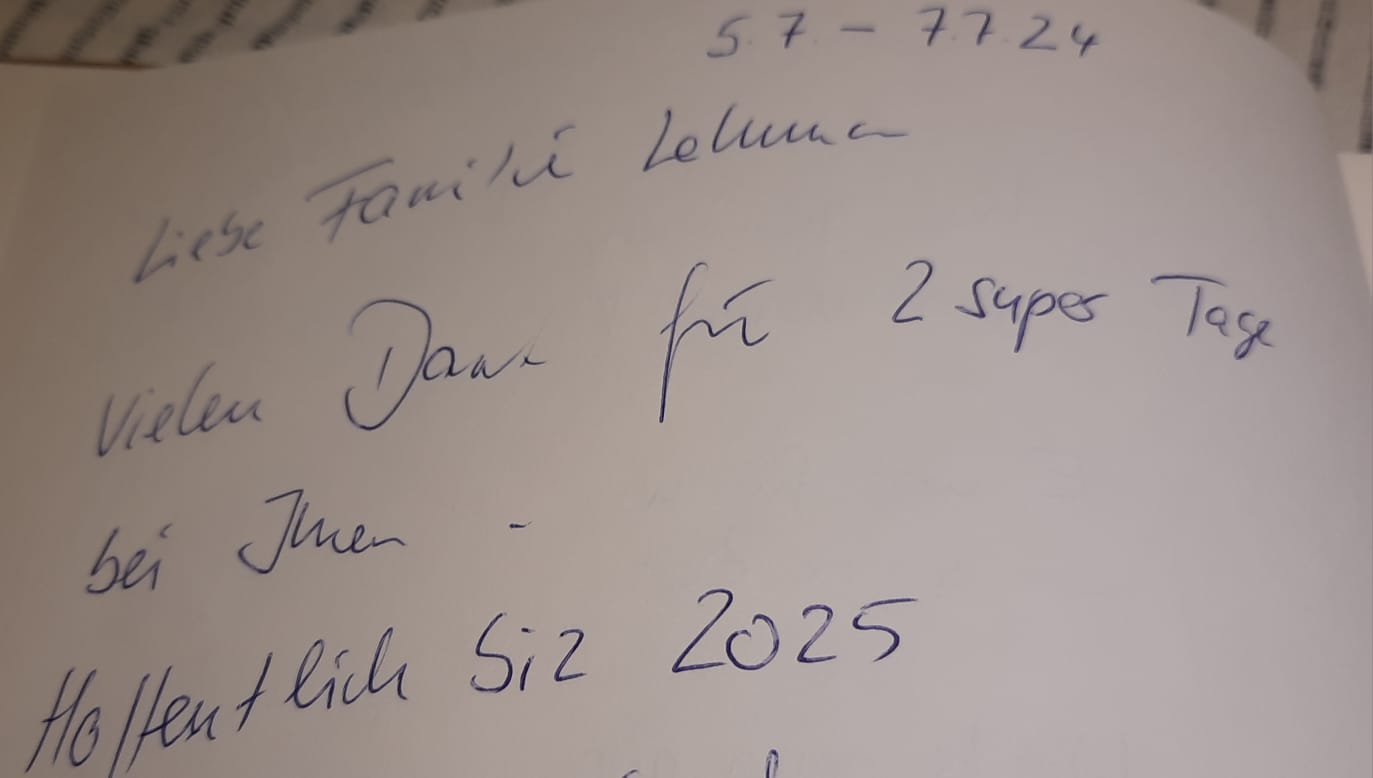 5.7. - 7.7.24
Liebe Familie Lehmann
Vielen Dank für 2 super Tage
bei Ihnen -
Hoffentlich bis 2025